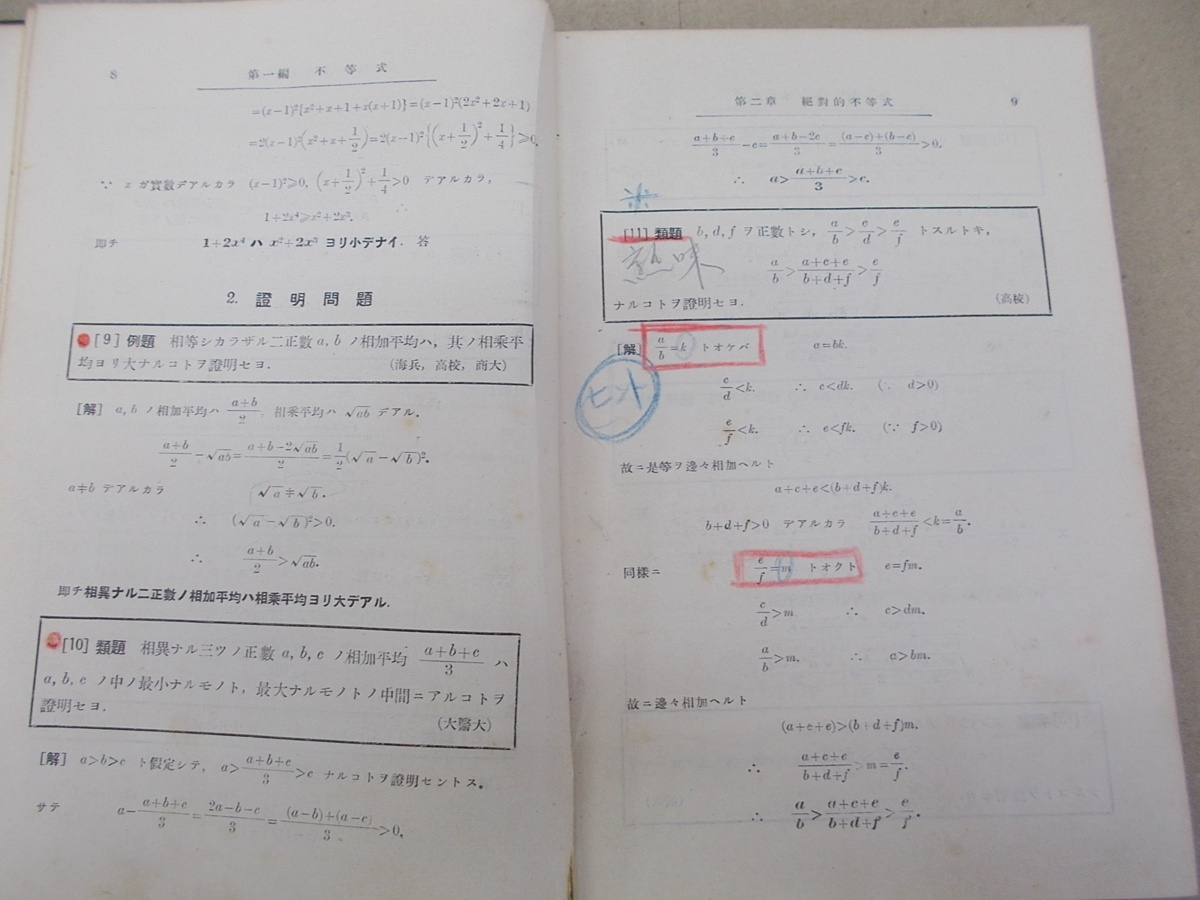 8 第一編 不等式
=(x-1)²{x²+x+1+x(x+1)}=(x-1)²(2x²+2x+1)
=2(x-1)²(x²+x+1/2)=2(x-1)²{(x+1/2)²+1/4}≧0.
∵ x ガ實數デアルカラ (x-1)²≧0, (x+1/2)²+1/4>0 デアルカラ,
∴
1+2x⁴≧x²+2x³.
卽チ 1+2x⁴ ハ x²+2x³ ヨリ小デナイ. 答
2. 證明問題
[9] 例題 相等シカラザル二正數 a, b ノ相加平均ハ, 其ノ相乘平
均ヨリ大ナルコトヲ證明セヨ. (海兵, 高校, 商大)
[解] a, b ノ相加平均ハ (a+b)/2, 相乘平均ハ √ab デアル.
(a+b)/2-√ab=(a+b-2√ab)/2=1/2(√a-√b)².
a≠b デアルカラ √a≠√b.
∴ (√a-√b)²>0.
∴ (a+b)/2>√ab.
卽チ相異ナル二正數ノ相加平均ハ相乘平均ヨリ大デアル.
[10] 類題 相異ナル三ツノ正數 a, b, c ノ相加平均 (a+b+c)/3 ハ
a, b, c ノ中ノ最小ナルモノト, 最大ナルモノトノ中間ニアルコトヲ
證明セヨ. (大醫大)
[解] a>b>c ト假定シテ, a>(a+b+c)/3>c ナルコトヲ證明セントス.
サテ a-(a+b+c)/3=(2a-b-c)/3=((a-b)+(a-c))/3>0,
第二章 絕對的不等式 9
(a+b+c)/3-c=(a+b-2c)/3=((a-c)+(b-c))/3>0.
∴ a>(a+b+c)/3>c.
[11] 類題 b, d, f ヲ正數トシ, a/b>c/d>e/f トスルトキ,
a/b>(a+c+e)/(b+d+f)>e/f
ナルコトヲ證明セヨ. (高校)
[解] a/b=k トオケバ a=bk.
ヒント
c/d<k. ∴ c<dk. (∵ d>0)
e/f<k. ∴ e<fk. (∵ f>0)
故ニ是等ヲ邊々相加ヘルト
a+c+e<(b+d+f)k.
b+d+f>0 デアルカラ (a+c+e)/(b+d+f)<k=a/b.
同樣ニ e/f=m トオクト e=fm.
c/d>m ∴ c>dm.
a/b>m. ∴ a>bm.
故ニ邊々相加ヘルト
(a+c+e)>(b+d+f)m.
∴ (a+c+e)/(b+d+f)>m=e/f.
∴ a/b>(a+c+e)/(b+d+f)>e/f.